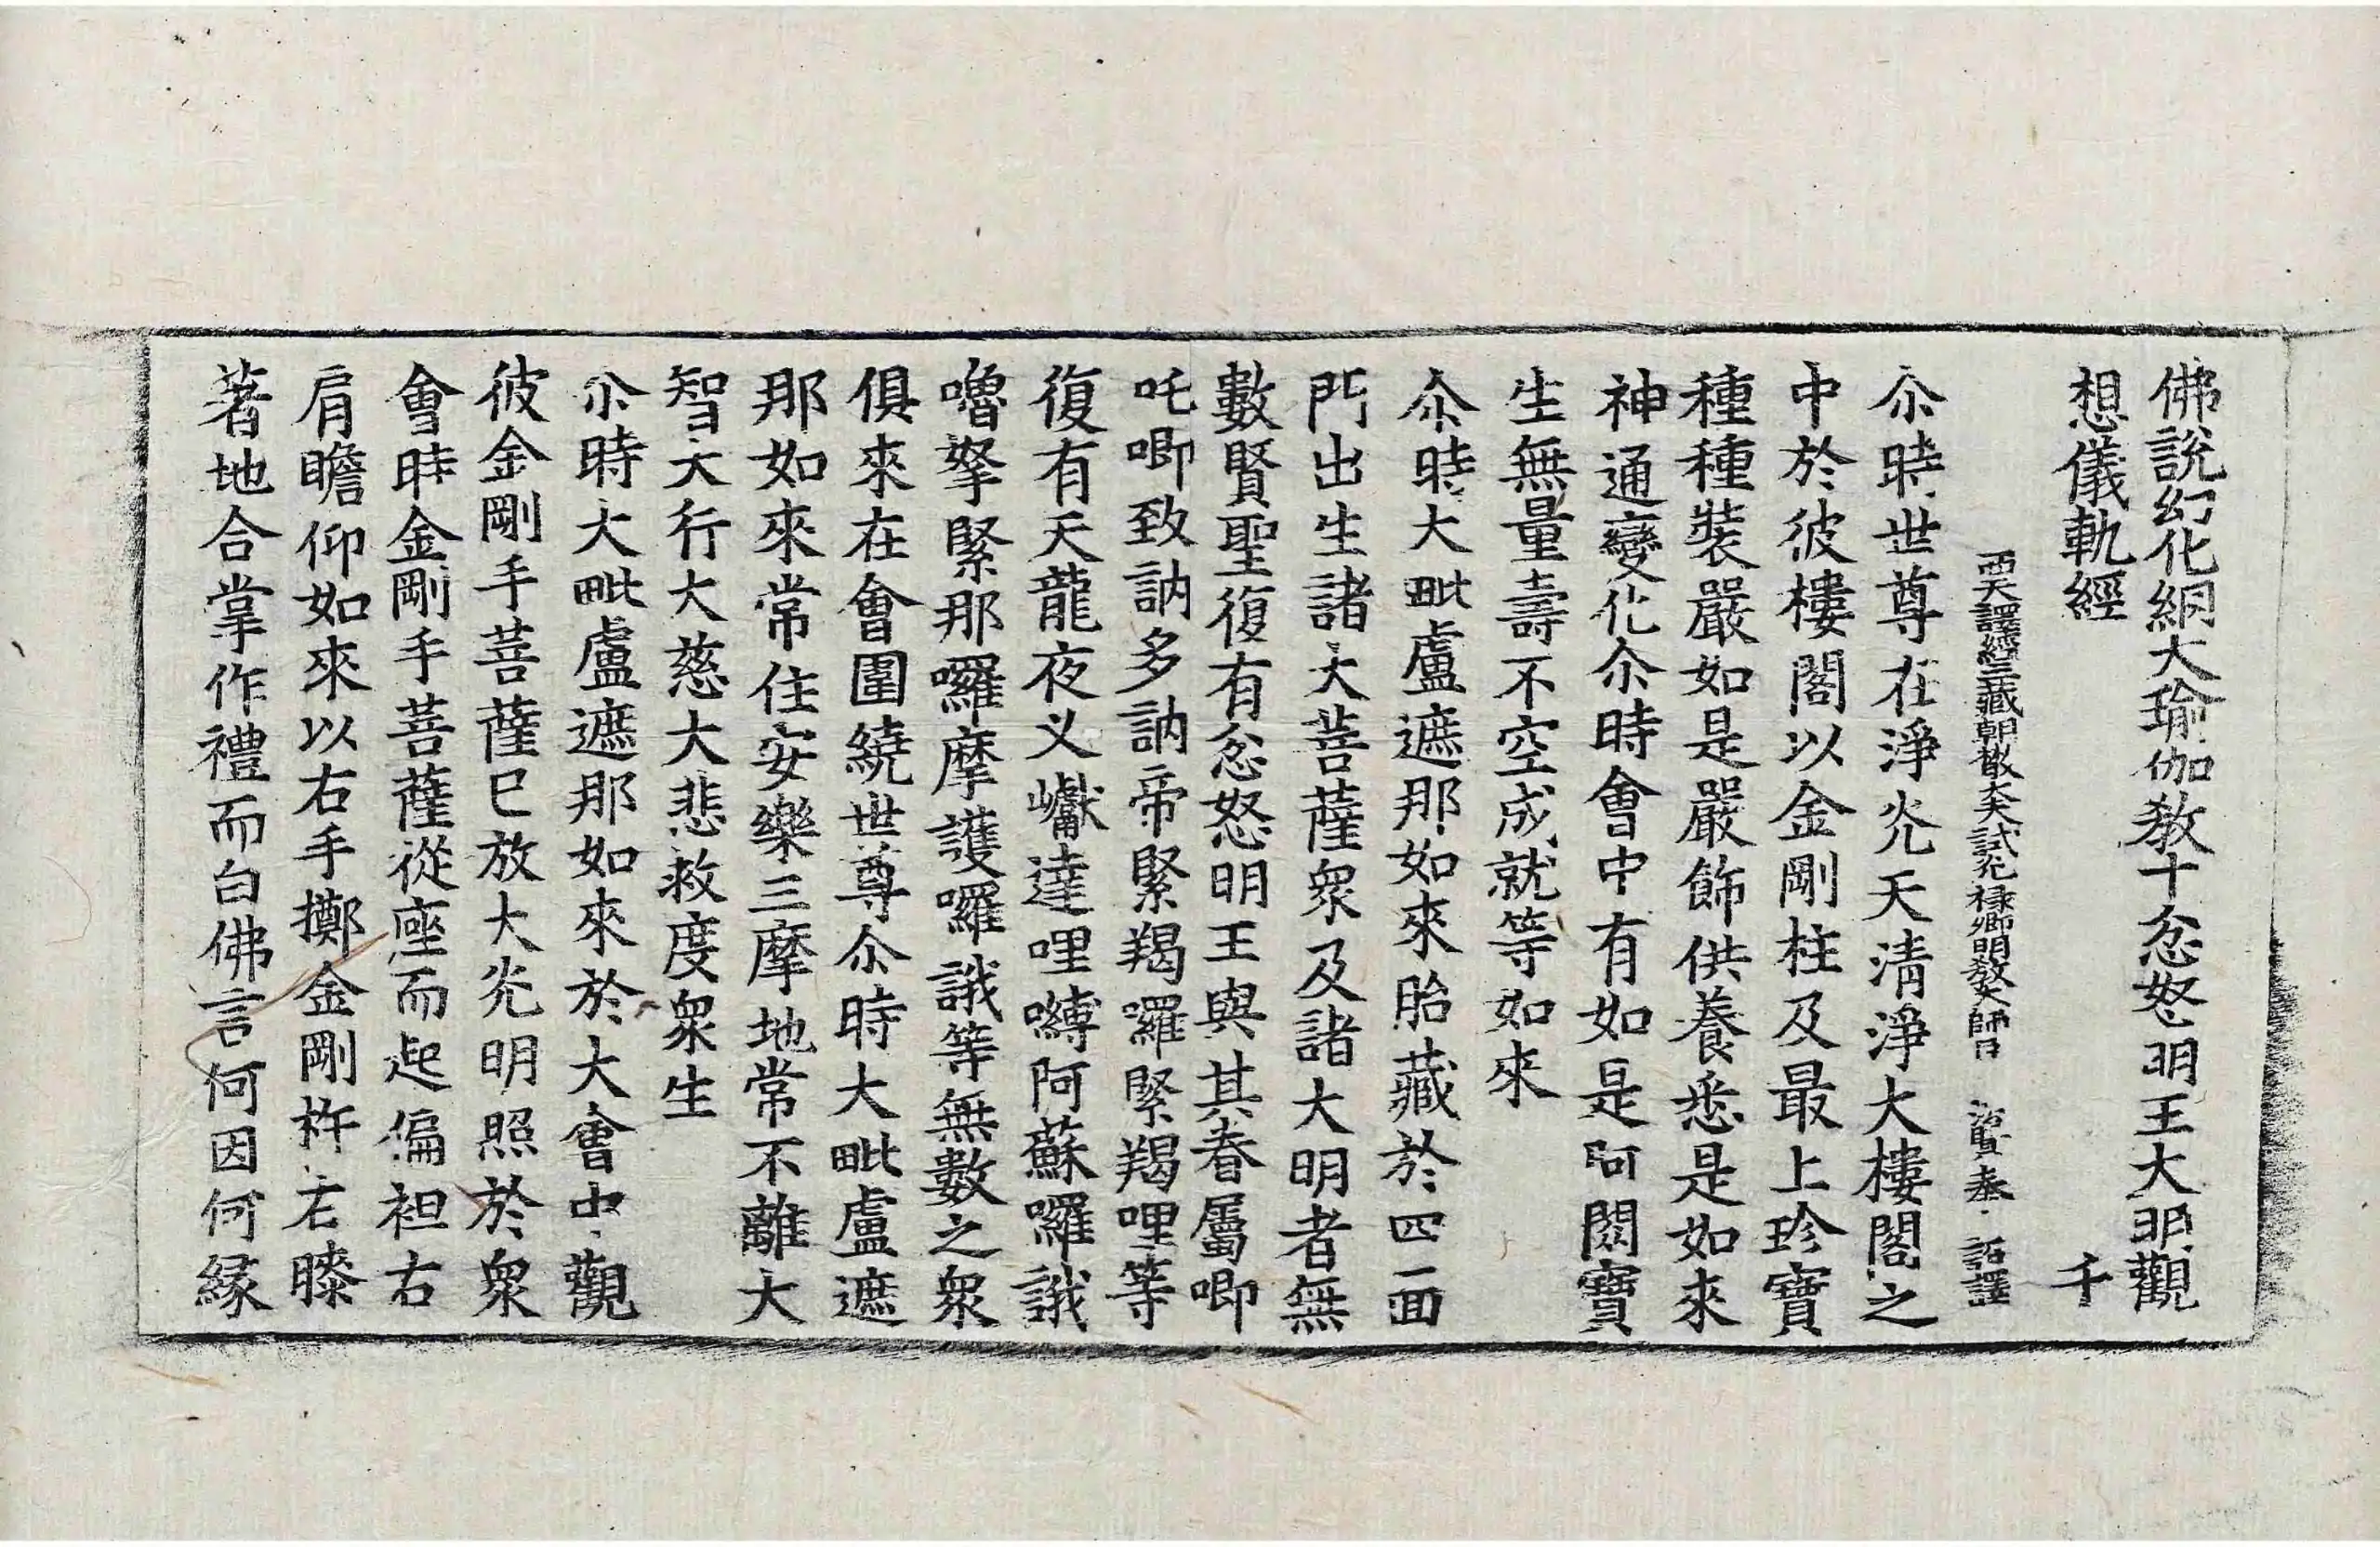 佛說幻化網大瑜伽教十忿怒明王大明觀
想儀軌經 千
西天譯經三藏朝散大夫試光禄卿明教大師臣 法賢 奉 詔譯
尒時世尊在淨光天清淨大樓閣之
中於彼樓閣以金剛柱及最上珍寶
種種裝嚴如是嚴飾供養悉是如來
神通變化尒時會中有如是阿閦寶
生無量壽不空成就等如來
尒時大毗盧遮那如來胎藏於四面
門出生諸大菩薩衆及諸大明者無
數賢聖復有忿怒明王與其眷屬唧
吒唧致訥多訥帝緊羯囉緊羯哩等
復有天龍夜叉巘達哩嚩阿蘇囉誐
嚕拏緊那囉摩護囉誐等無數之衆
俱來在會圍繞世尊尒時大毗盧遮
那如來常住安樂三摩地常不離大
智大行大慈大悲救度衆生
尒時大毗盧遮那如來於大會中觀
彼金剛手菩薩已放大光明照於衆
會時金剛手菩薩從座而起偏袒右
肩瞻仰如來以右手擲金剛杵右膝
著地合掌作禮而白佛言何因何縁